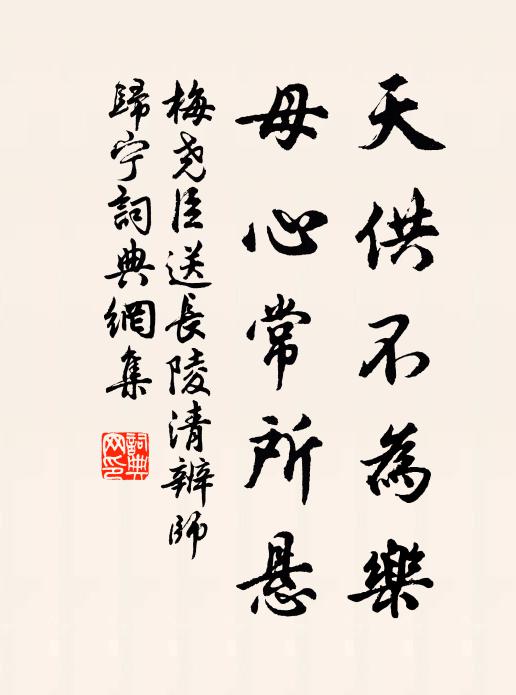 天供不為樂
母心常所懸
梅尧臣送長陵清辨師
歸宁詞典網集
詞典網印